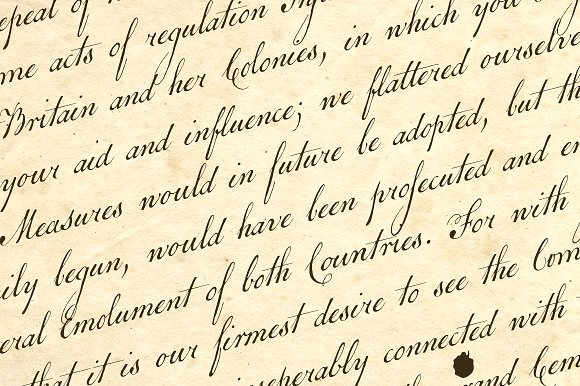 epeal of
me acts of regulation
Britain and her Colonies, in which you
your aid and influence; we flattered ourselve
Measures would in future be adopted, but th
ily begun, would have been prosecuted and en
eral Emolument of both Countries. For with
that it is our firmest desire to see the Com
inseperably connected with
rand Cem